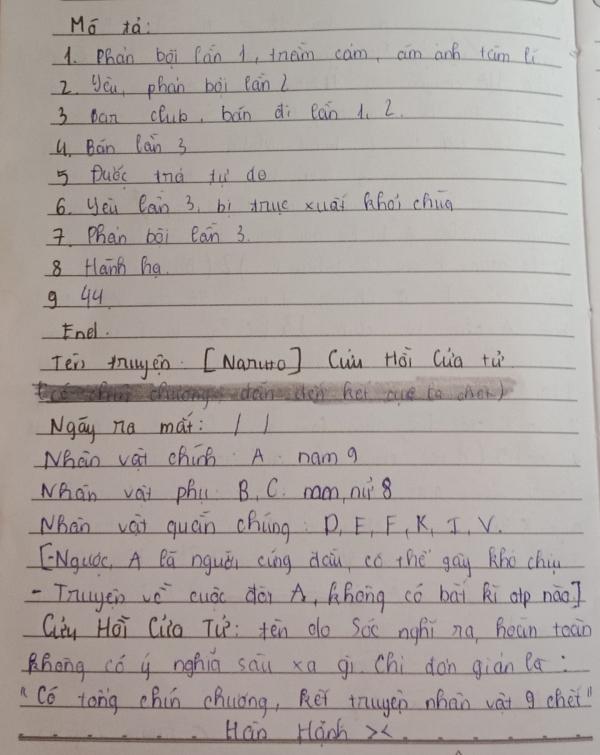 Mô tả:
1. Phản bội lần 1, trầm cảm, ám ảnh tâm lí
2. Yêu, phản bội lần 2
3 Bar club, bán đi lần 1, 2.
4. Bán lần 3
5 Được trả tự do
6. Yêu lần 3, bị trục xuất khỏi chùa
7. Phản bội lần 3.
8 Hành hạ.
9 44.
End.
Tên truyện: [Naruto] Cửu Hồi Cửa tử
(có chín chương, dẫn đến kết cục là chết)
Ngày ra mắt: / /
Nhân vật chính: A nam 9
Nhân vật phụ: B, C. nam, nữ 8
Nhân vật quần chúng: D, E, F, K, I, V.
[-Ngược, A là người cứng đầu, có thể gây khó chịu
- Truyện về cuộc đời A, không có bất kì otp nào.]
Cửu Hồi Cửa Tử: tên do Sóc nghĩ ra, hoàn toàn
không có ý nghĩa sâu xa gì. Chỉ đơn giản là:
"Có tổng chín chương, kết truyện nhân vật 9 chết"
Hân Hạnh ><